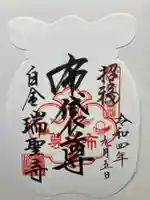 招福
令和四年
九月五日
布袋尊
白金 瑞聖寺